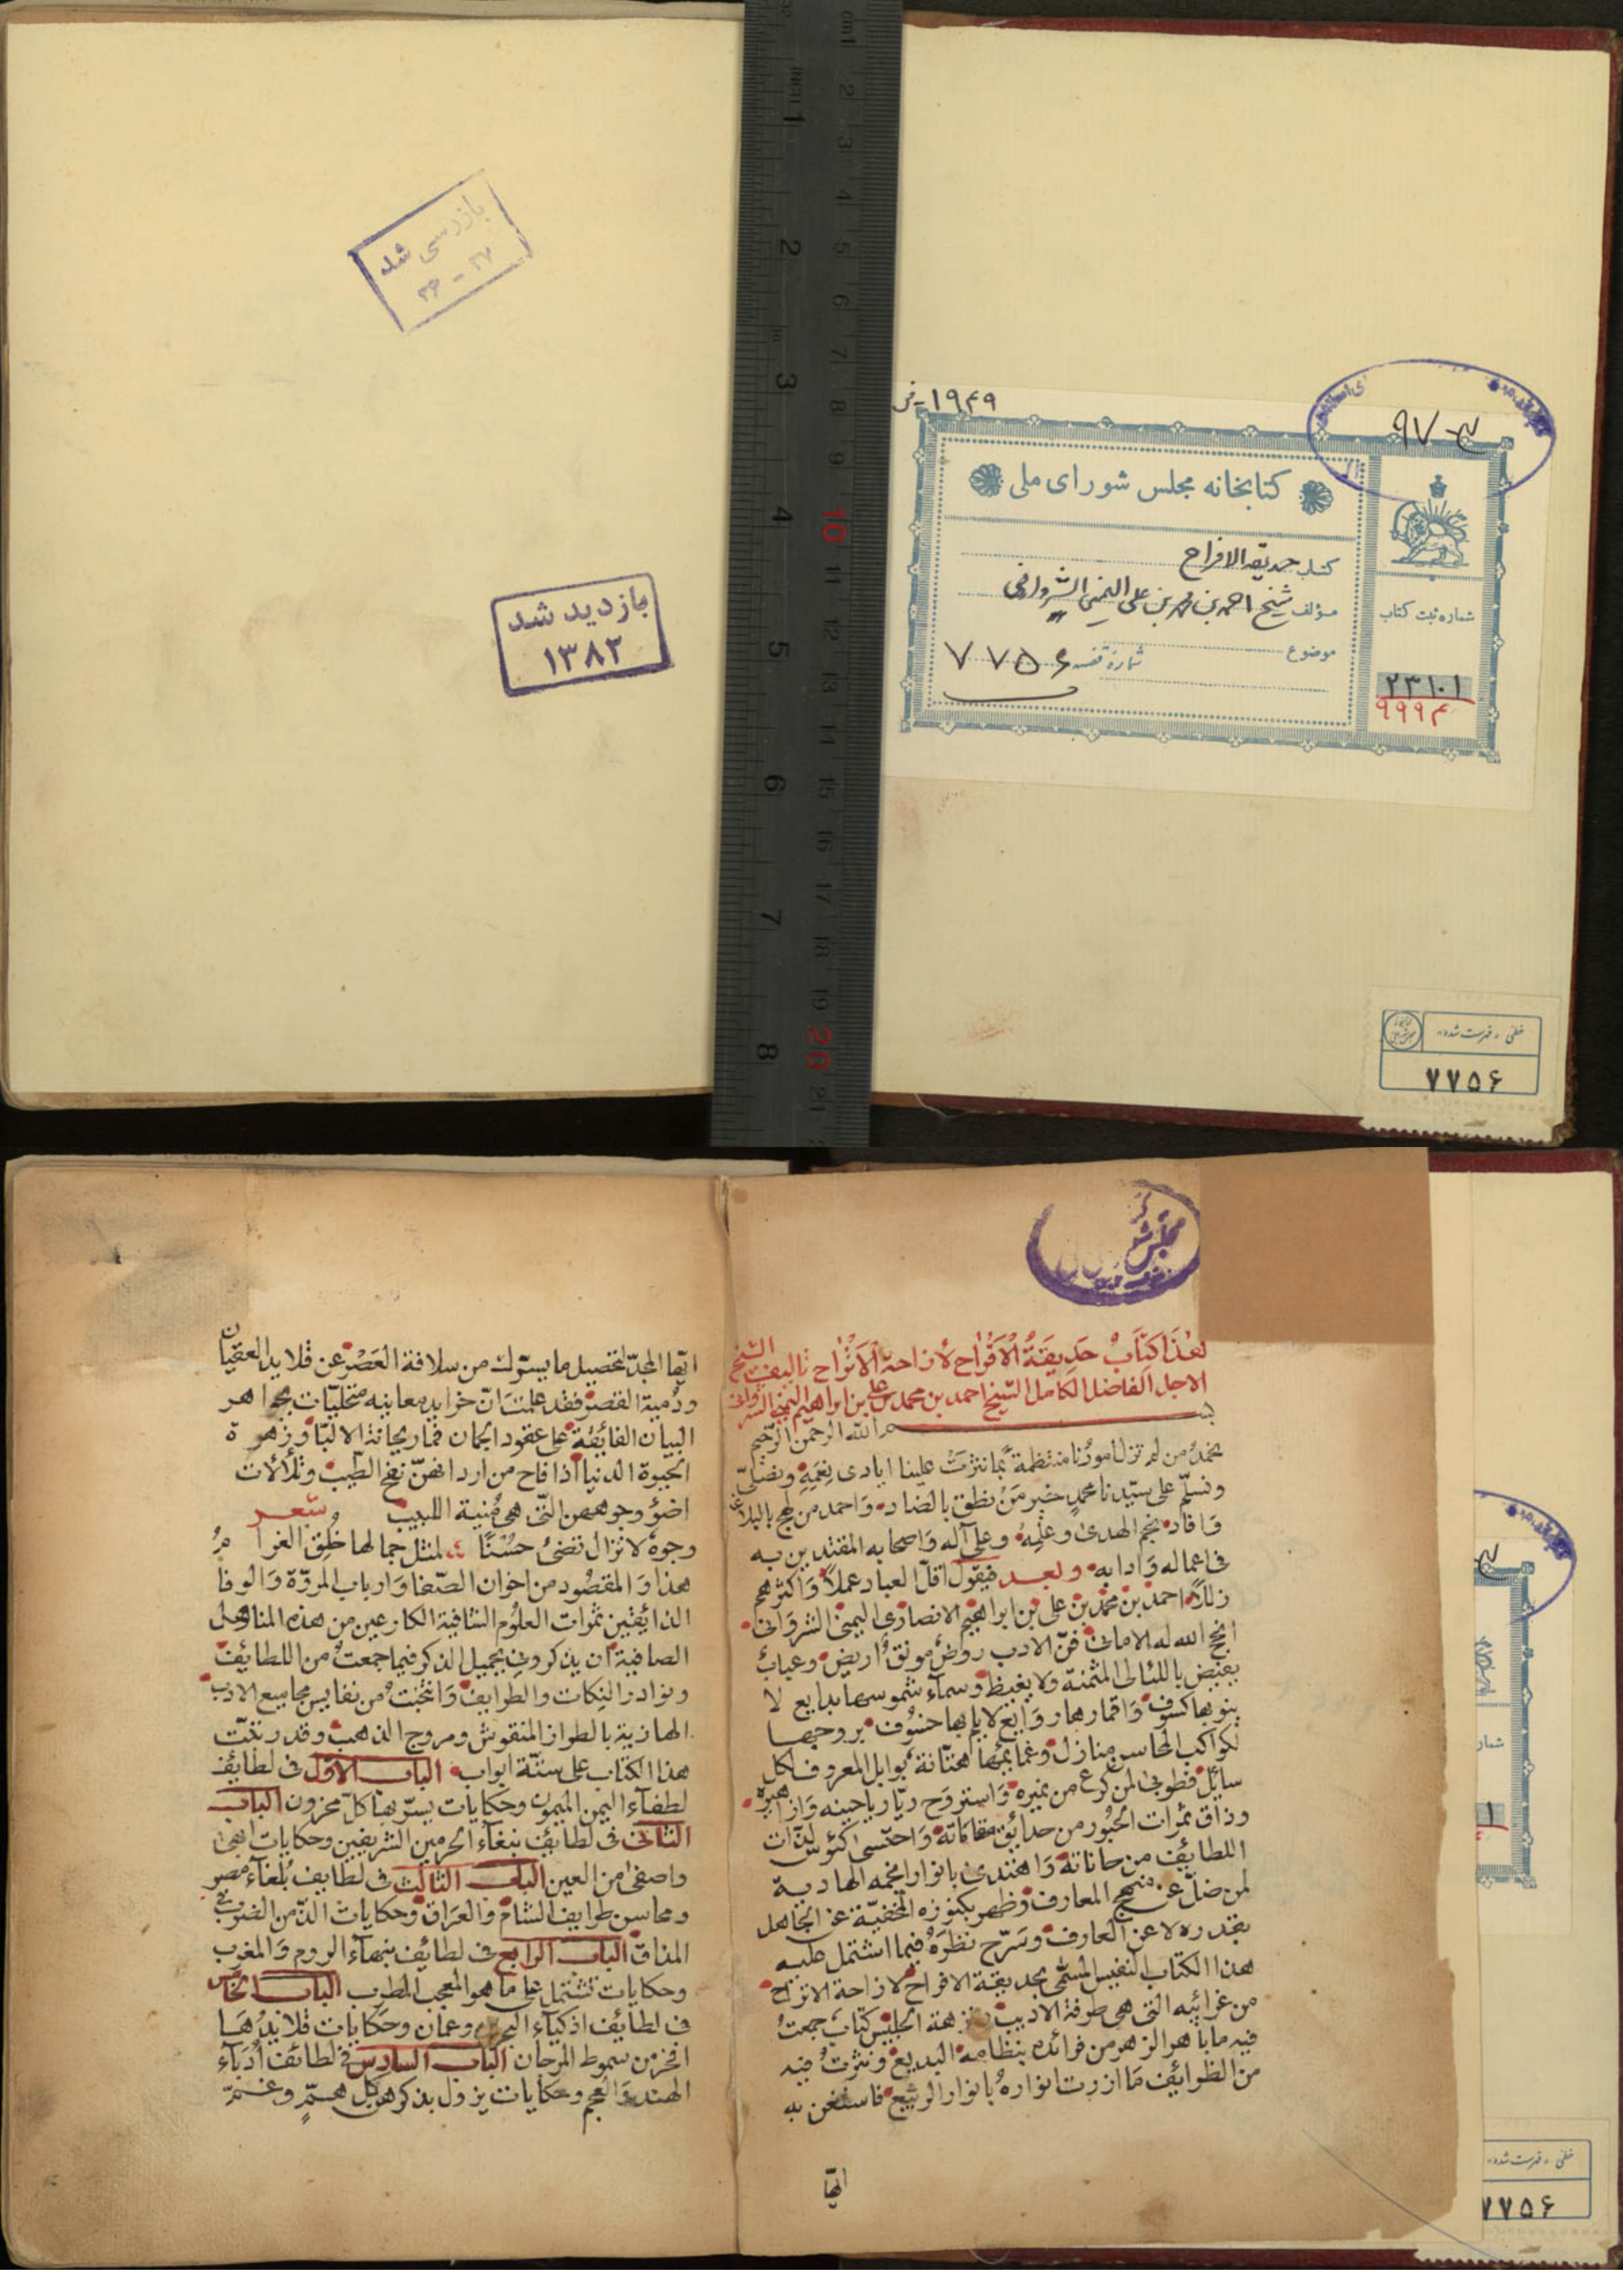 بازرسی شد
۳۶ - ۳۷
بازدید شد
۱۳۸۲
۱۹۴۹-ف
ج-۹۷
کتابخانه مجلس شورای ملی
کتاب حدیقه الافراح
مؤلف شیخ احمد بن محمد بن علی الیمنی الشروانی
موضوع
شماره قفسه ۷۷۵۶
شماره ثبت کتاب
۲۳۱۰۱
خطی - فهرست شده
۷۷۵۶
هذا كتاب حديقة الافراح لازاحة الاتراح تاليف الشيخ
الاجل الفاضل الكامل الشيخ احمد بن محمد بن علي بن ابراهيم اليمني الشرواني
بسم الله الرحمن الرحيم
نحمد من لم تزل امورنا منتظمة بما نثرت علينا ايادي نعمه ونصلّي
ونسلّم على سيّدنا محمد خير من نطق بالضاد واحمد من لهج بالبلاغة
وافاد نجم الهدى وعلمه وعلى آله واصحابه المقتدين به
في اعماله وادابه وبعد فيقول اقلّ العباد عملاً واكثرهم
زللاً احمد بن محمد بن علي بن ابراهيم الانصاري اليمني الشرواني
انجح الله له الاماني فنّ الادب روض مونق اريض وعباب
يفيض باللئالي المثمنة ولا يغيظ وسماء شموسها بدايع لا
ينوبها كسوف واقمارها روايع لا يلم بها خسوف بروجها
لكواكب المحاسن منازل وغمايمها هتّانة بوابل المعروف لكل
سايل فطوبى لمن كرع من نميره واستروح ريّا رياحينه وازاهيره
وذاق ثمرات الحبور من حدايق مقاماته واحتسى كئوس لذّات
اللطايف من حاناته واهتدى بانوار انجمه الهادية
لمن ضلّ عن منهج المعارف وظهر بكنوزه المخفيّة عن الجاهل
بقدره لا عن العارف وسرّح نظره فيما اشتمل عليه
هذا الكتاب النفيس المسمّى بحديقة الافراح لازاحة الاتراح
من غرائبه التي هي طرفة الاديب ونزهة الجليس كتاب جمعت
فيه ما باهر الزهر من فرائده بنظامه البديع ونثرت فيه
من الظرائف ما ازرت انواره بانوار الربيع فاستغن به
ايّها
ايّها المجدّ لتحصيل ما يسرّك من سلافة العصر عن قلايد العقيان
ودمية القصر فقد علمت انّ خرايد معانيه متحليّات بجواهر
البيان الفائقة على عقود الجمان فما ريحانة الالبّا وزهرة
الحيوة الدنيا اذا فاح من اردانهنّ نفح الطيب وتلألأت
اضؤ وجوههن التي هي منية اللبيب شعر
وجوه لا تزال تضئ حسنا لمثل جمالها خلق الغرام
هذا والمقصود من اخوان الصفا وارباب المروّة والوفا
الذائقين ثمرات العلوم الشافية الكارعين من هذه المناهل
الصافية ان يذكروني بجميل الذكر فيما جمعت من اللطايف
ونوادر النكات والطرايف وانتخبت من نفايس مجاميع الادب
الهازية بالطراز المنقوش ومروج الذهب وقد رتبت
هذا الكتاب على ستّة ابواب الباب الاول في لطائف
لطفاء اليمن الميمون وحكايات يسرّ بها كلّ محزون الباب
الثاني في لطايف نبغاء الحرمين الشريفين وحكايات ابهى
واصفى من العين الباب الثالث في لطايف بلغاء مصر
ومحاسن طرايف الشام والعراق وحكايات الذّ من الضرب في
المذاق الباب الرابع في لطائف نبهاء الروم والمغرب
وحكايات تشتمل على ما هو المعجب المطرب الباب الخامس
في لطائف اذكياء البحرين وعمان وحكايات قلايدها
افخر من سموط المرجان الباب السادس في لطائف أدباء
الهند والعجم وحكايات يزول بذكرهن كل همّ وغمّ